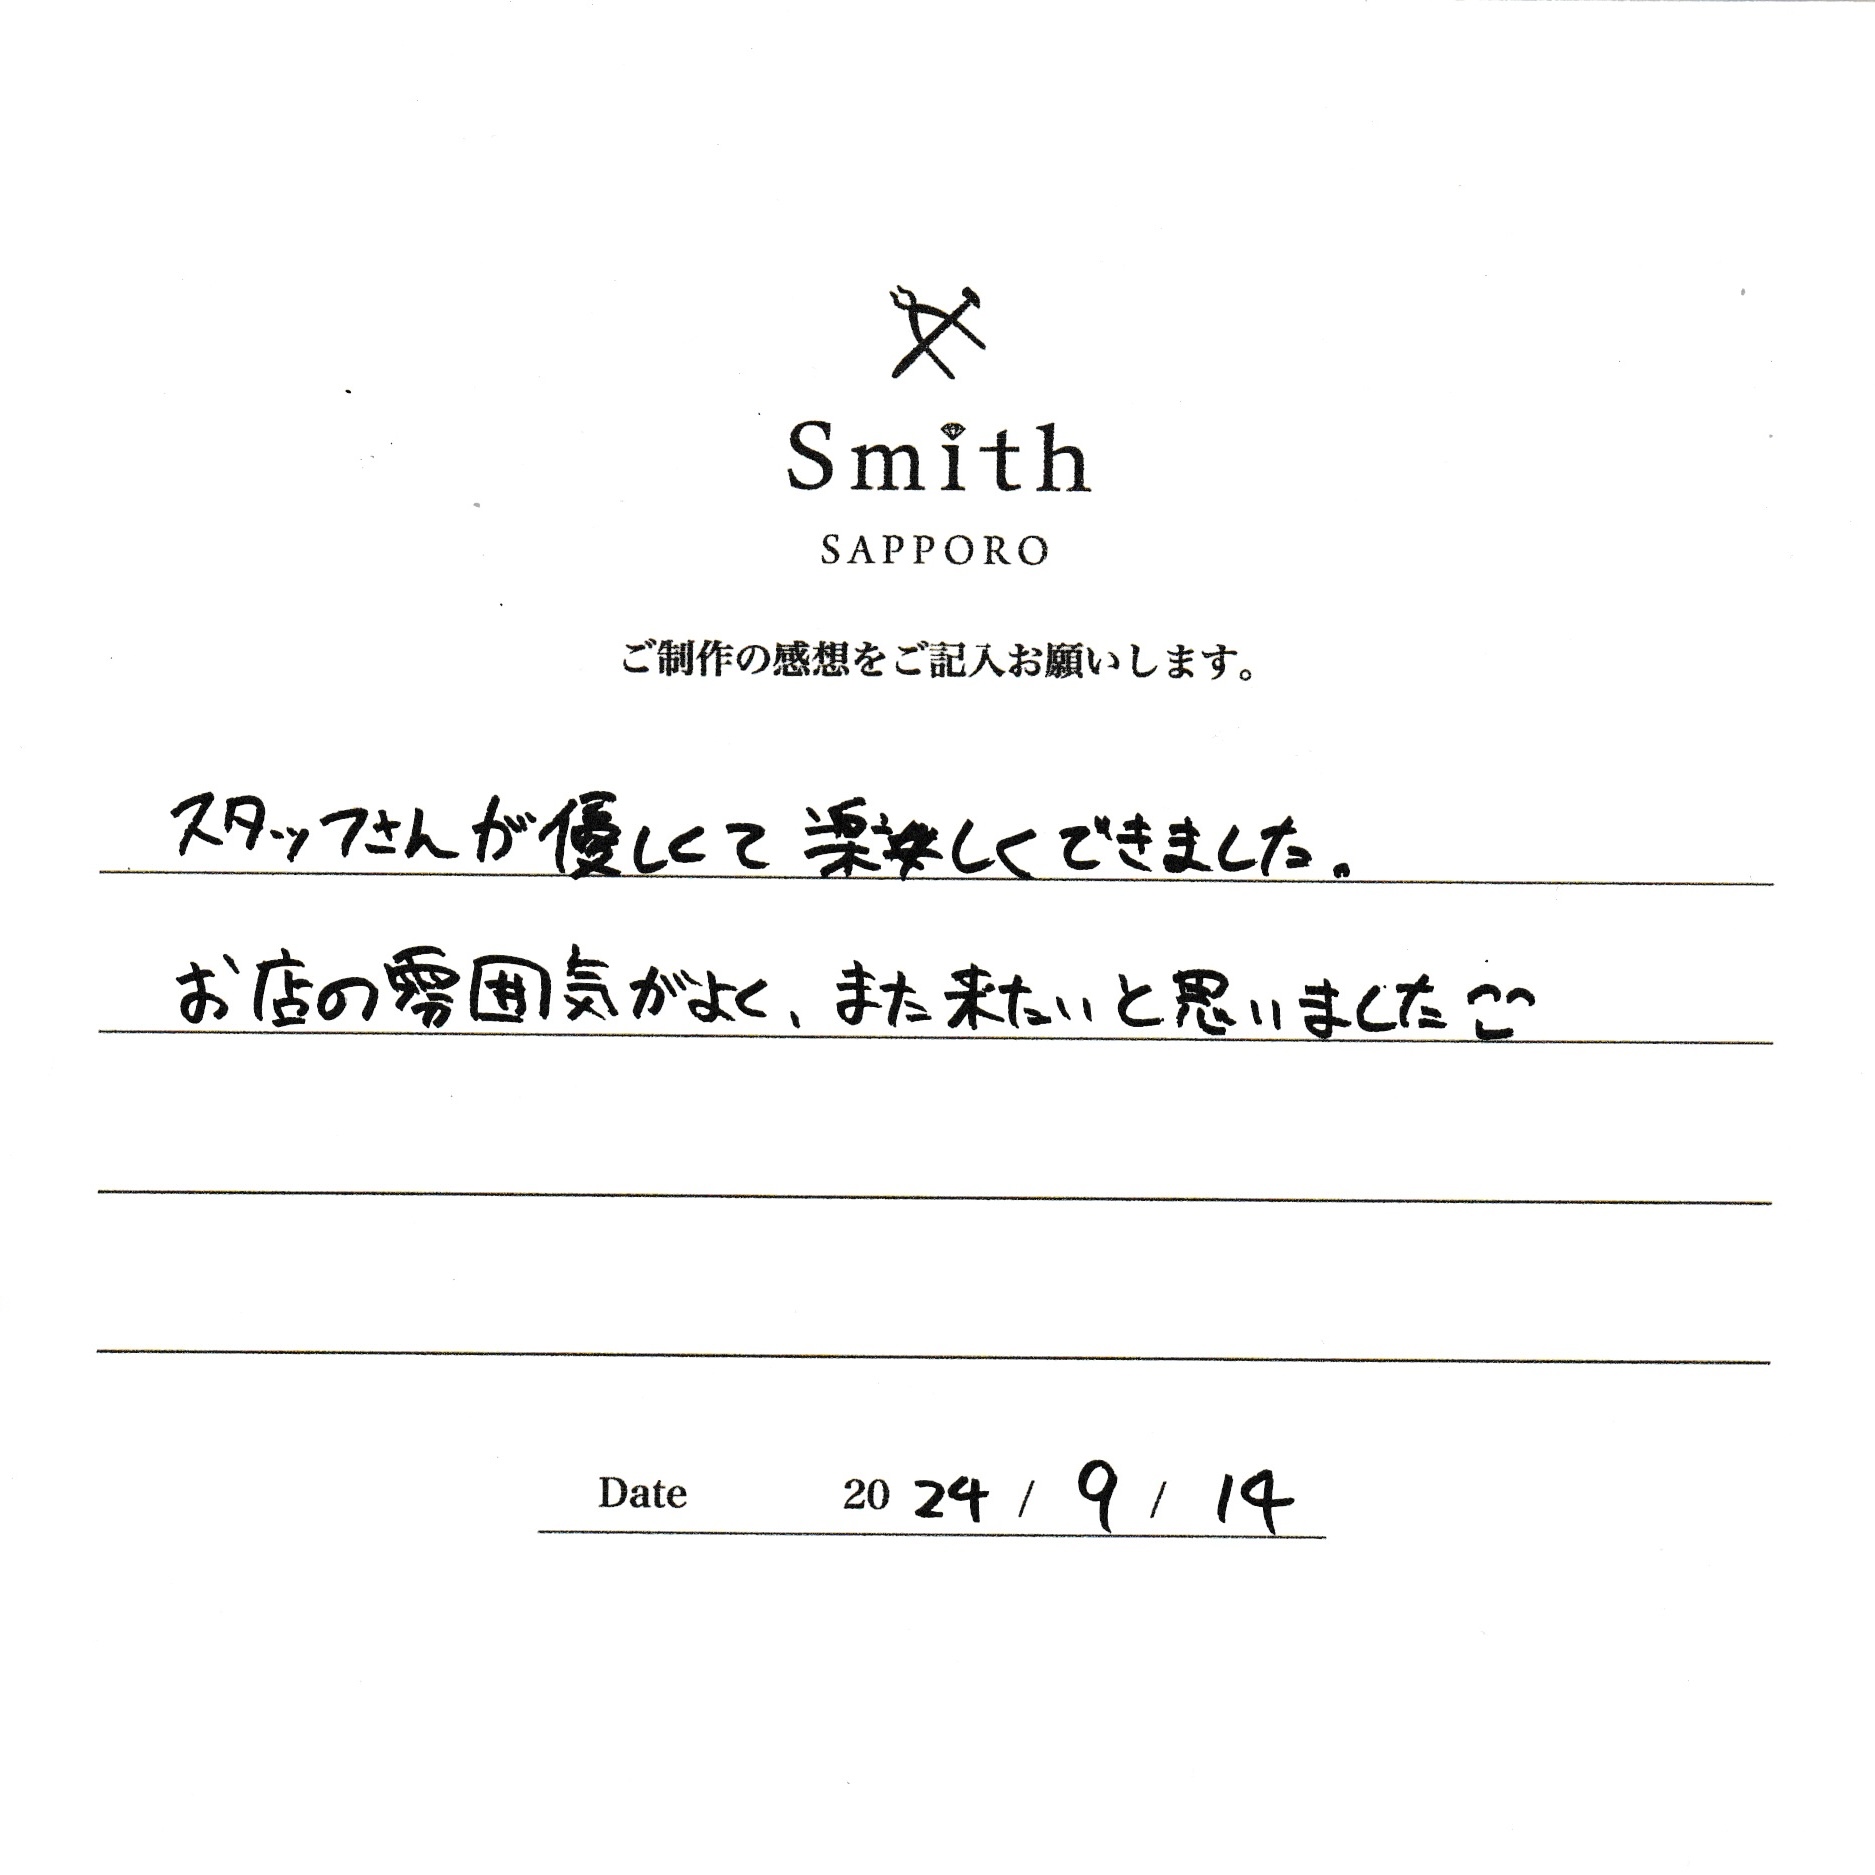 Smith
SAPPORO
ご制作の感想をご記入お願いします。
スタッフさんが優しくて楽しくできました。
お店の雰囲気がよく、また来たいと思いました
Date 2024 / 9 / 14